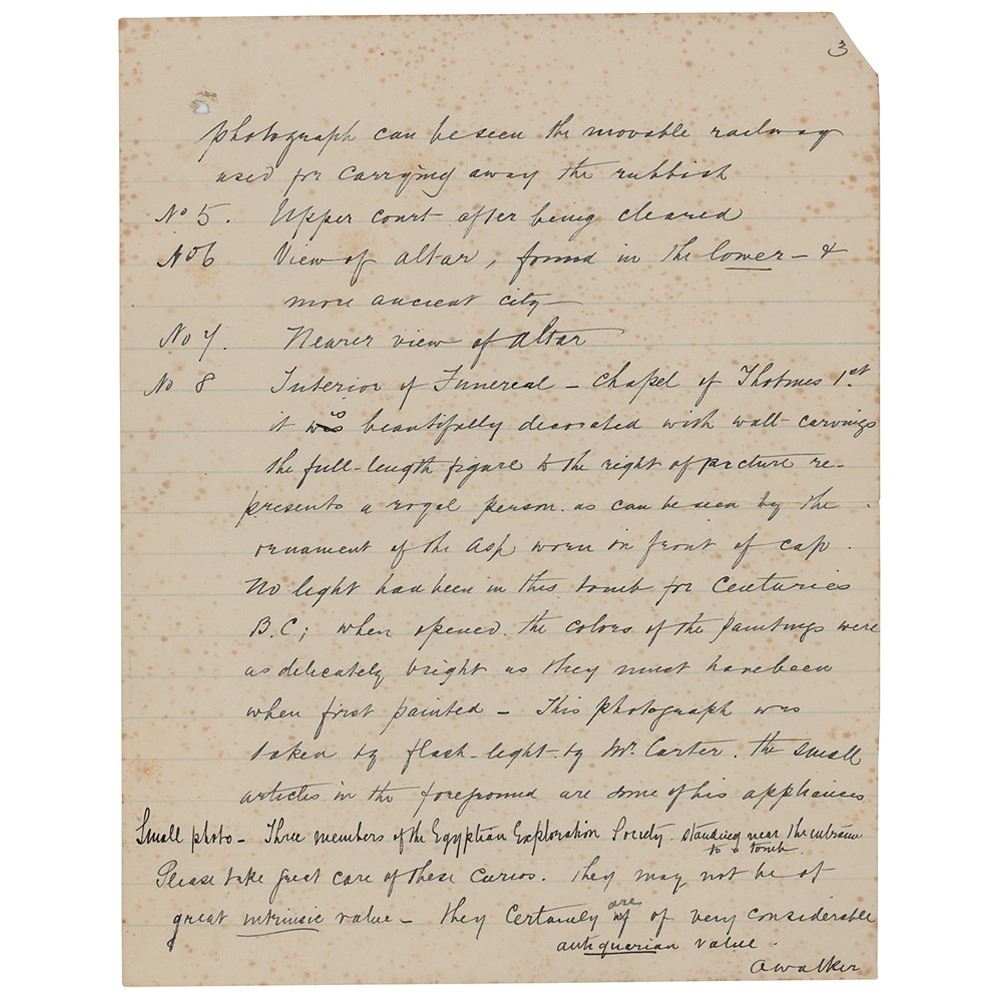 3
photograph can be seen the movable railway
used for carrying away the rubbish
No 5. Upper court after being cleared
No 6 View of altar, found in the lower - &
more ancient city -
No 7. Nearer view of altar
No 8 Interior of Funereal - chapel of Thotmes 1st.
is
it was beautifully decorated with wall-carvings
the full-length figure to the right of picture re-
presents a royal person. as can be seen by the
ornament of the Asp worn on front of cap.
No light had been in this tomb for Centuries
B.C; when opened. the colors of the paintings were
as delicately bright as they must have been
when first painted - This photograph was
taken by flash-light-by Mr. Carter. the small
articles in the foreground are some of his appliances
Small photo - Three members of the Egyptian Exploration Society. standing near the entrance
to a tomb.
Please take great care of these curios. They may not be of
are
great intrinsic value - they certainly of very considerable
antiquarian value.
A Walker